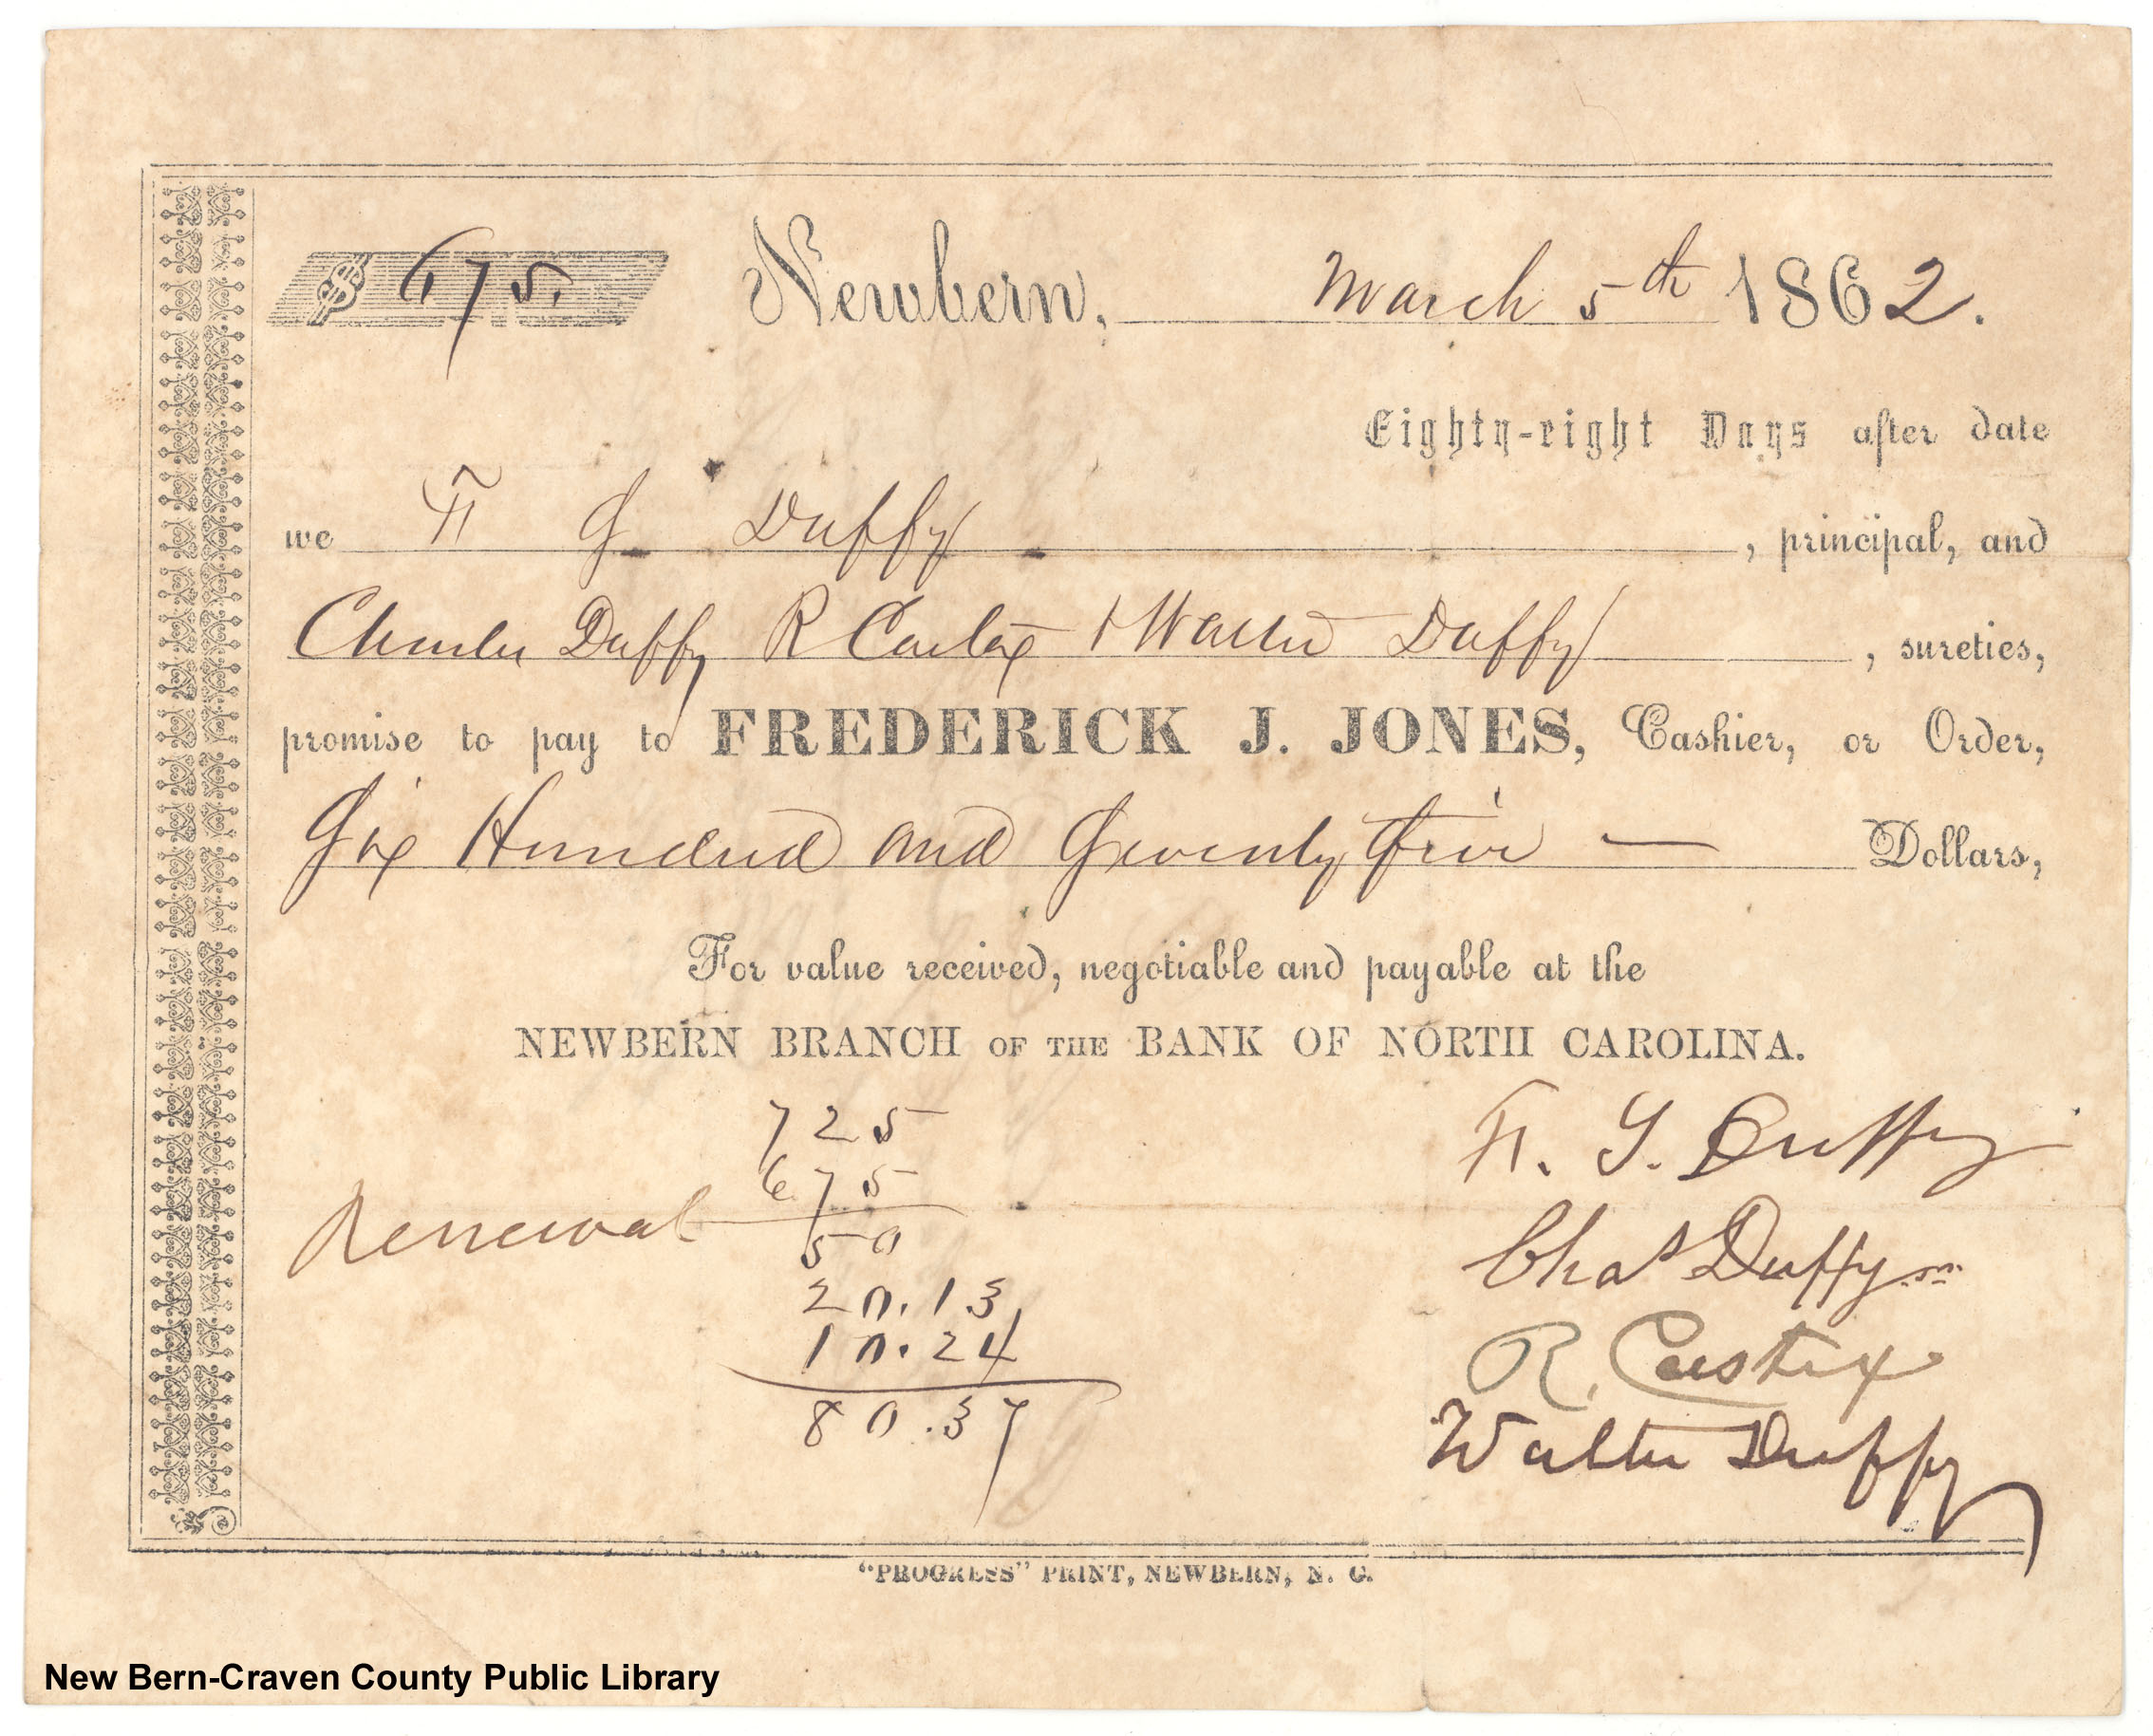 $ 675. Newbern, March 5th 1862.
Eighty-eight Days after date
we F G Duffy , principal, and
Charles Duffy R Castex & Walter Duffy , sureties,
promise to pay to FREDERICK J. JONES, Cashier, or Order,
Six Hundred and Seventy five — Dollars,
For value received, negotiable and payable at the
NEWBERN BRANCH OF THE BANK OF NORTH CAROLINA.
725
675
Renewal
50
20.13
10.24
80.37
F. G. Duffy
Chas Duffy sr
R. Castix
Walter Duffy
"PROGRESS" PRINT, NEWBERN, N. C.
New Bern-Craven County Public Library